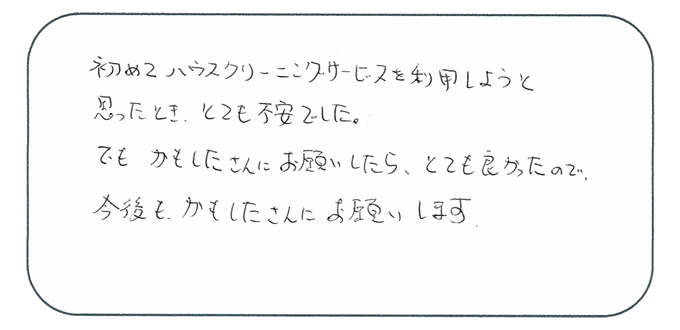 初めてハウスクリーニングサービスを利用しようと
思ったとき、とても不安でした。
でも かもしたさんにお願いしたら、とても良かったので、
今後も、かもしたさんに お願いします.